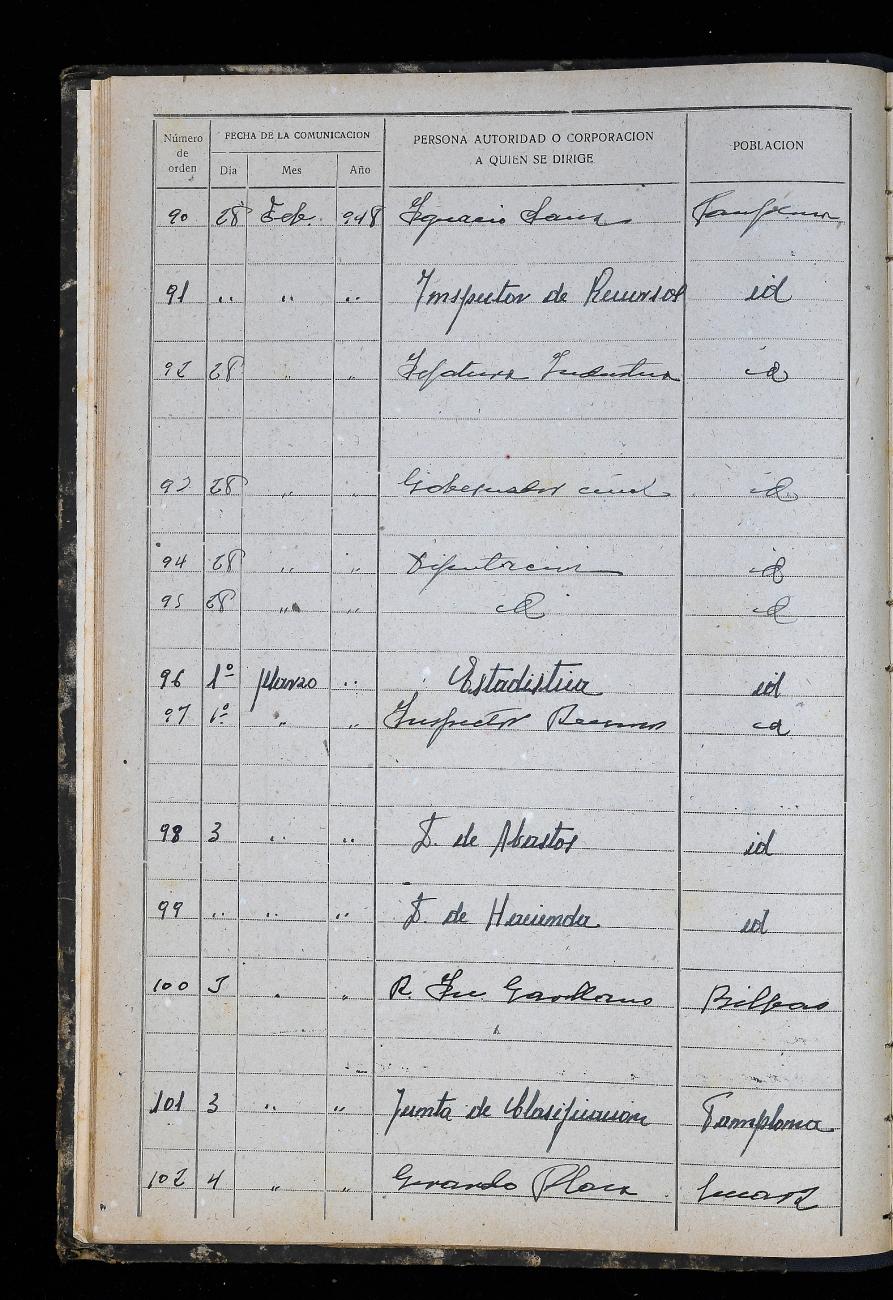 Número de orden FECHA DE LA COMUNICACION PERSONA AUTORIDAD O CORPORACION A QUIEN SE DIRIGE POBLACION
Día Mes Año
90 28 Feb. 948 Ignacio Sanz Pamplona
91 " " " Inspector de Recursos id
92 28 " " Jefatura Industria id
93 28 " " Gobernador civil id
94 28 " " Diputacion id
95 28 " " id id
96 1º Marzo " Estadistica id
97 1º " " Inspector Recursos id
98 3 " " D. de Abastos id
99 " " " D. de Hacienda id
100 3 " " R. Inf. Garellano Bilbao
101 3 " " Junta de Clasificacion Pamplona
102 4 " " Gerardo Plaza